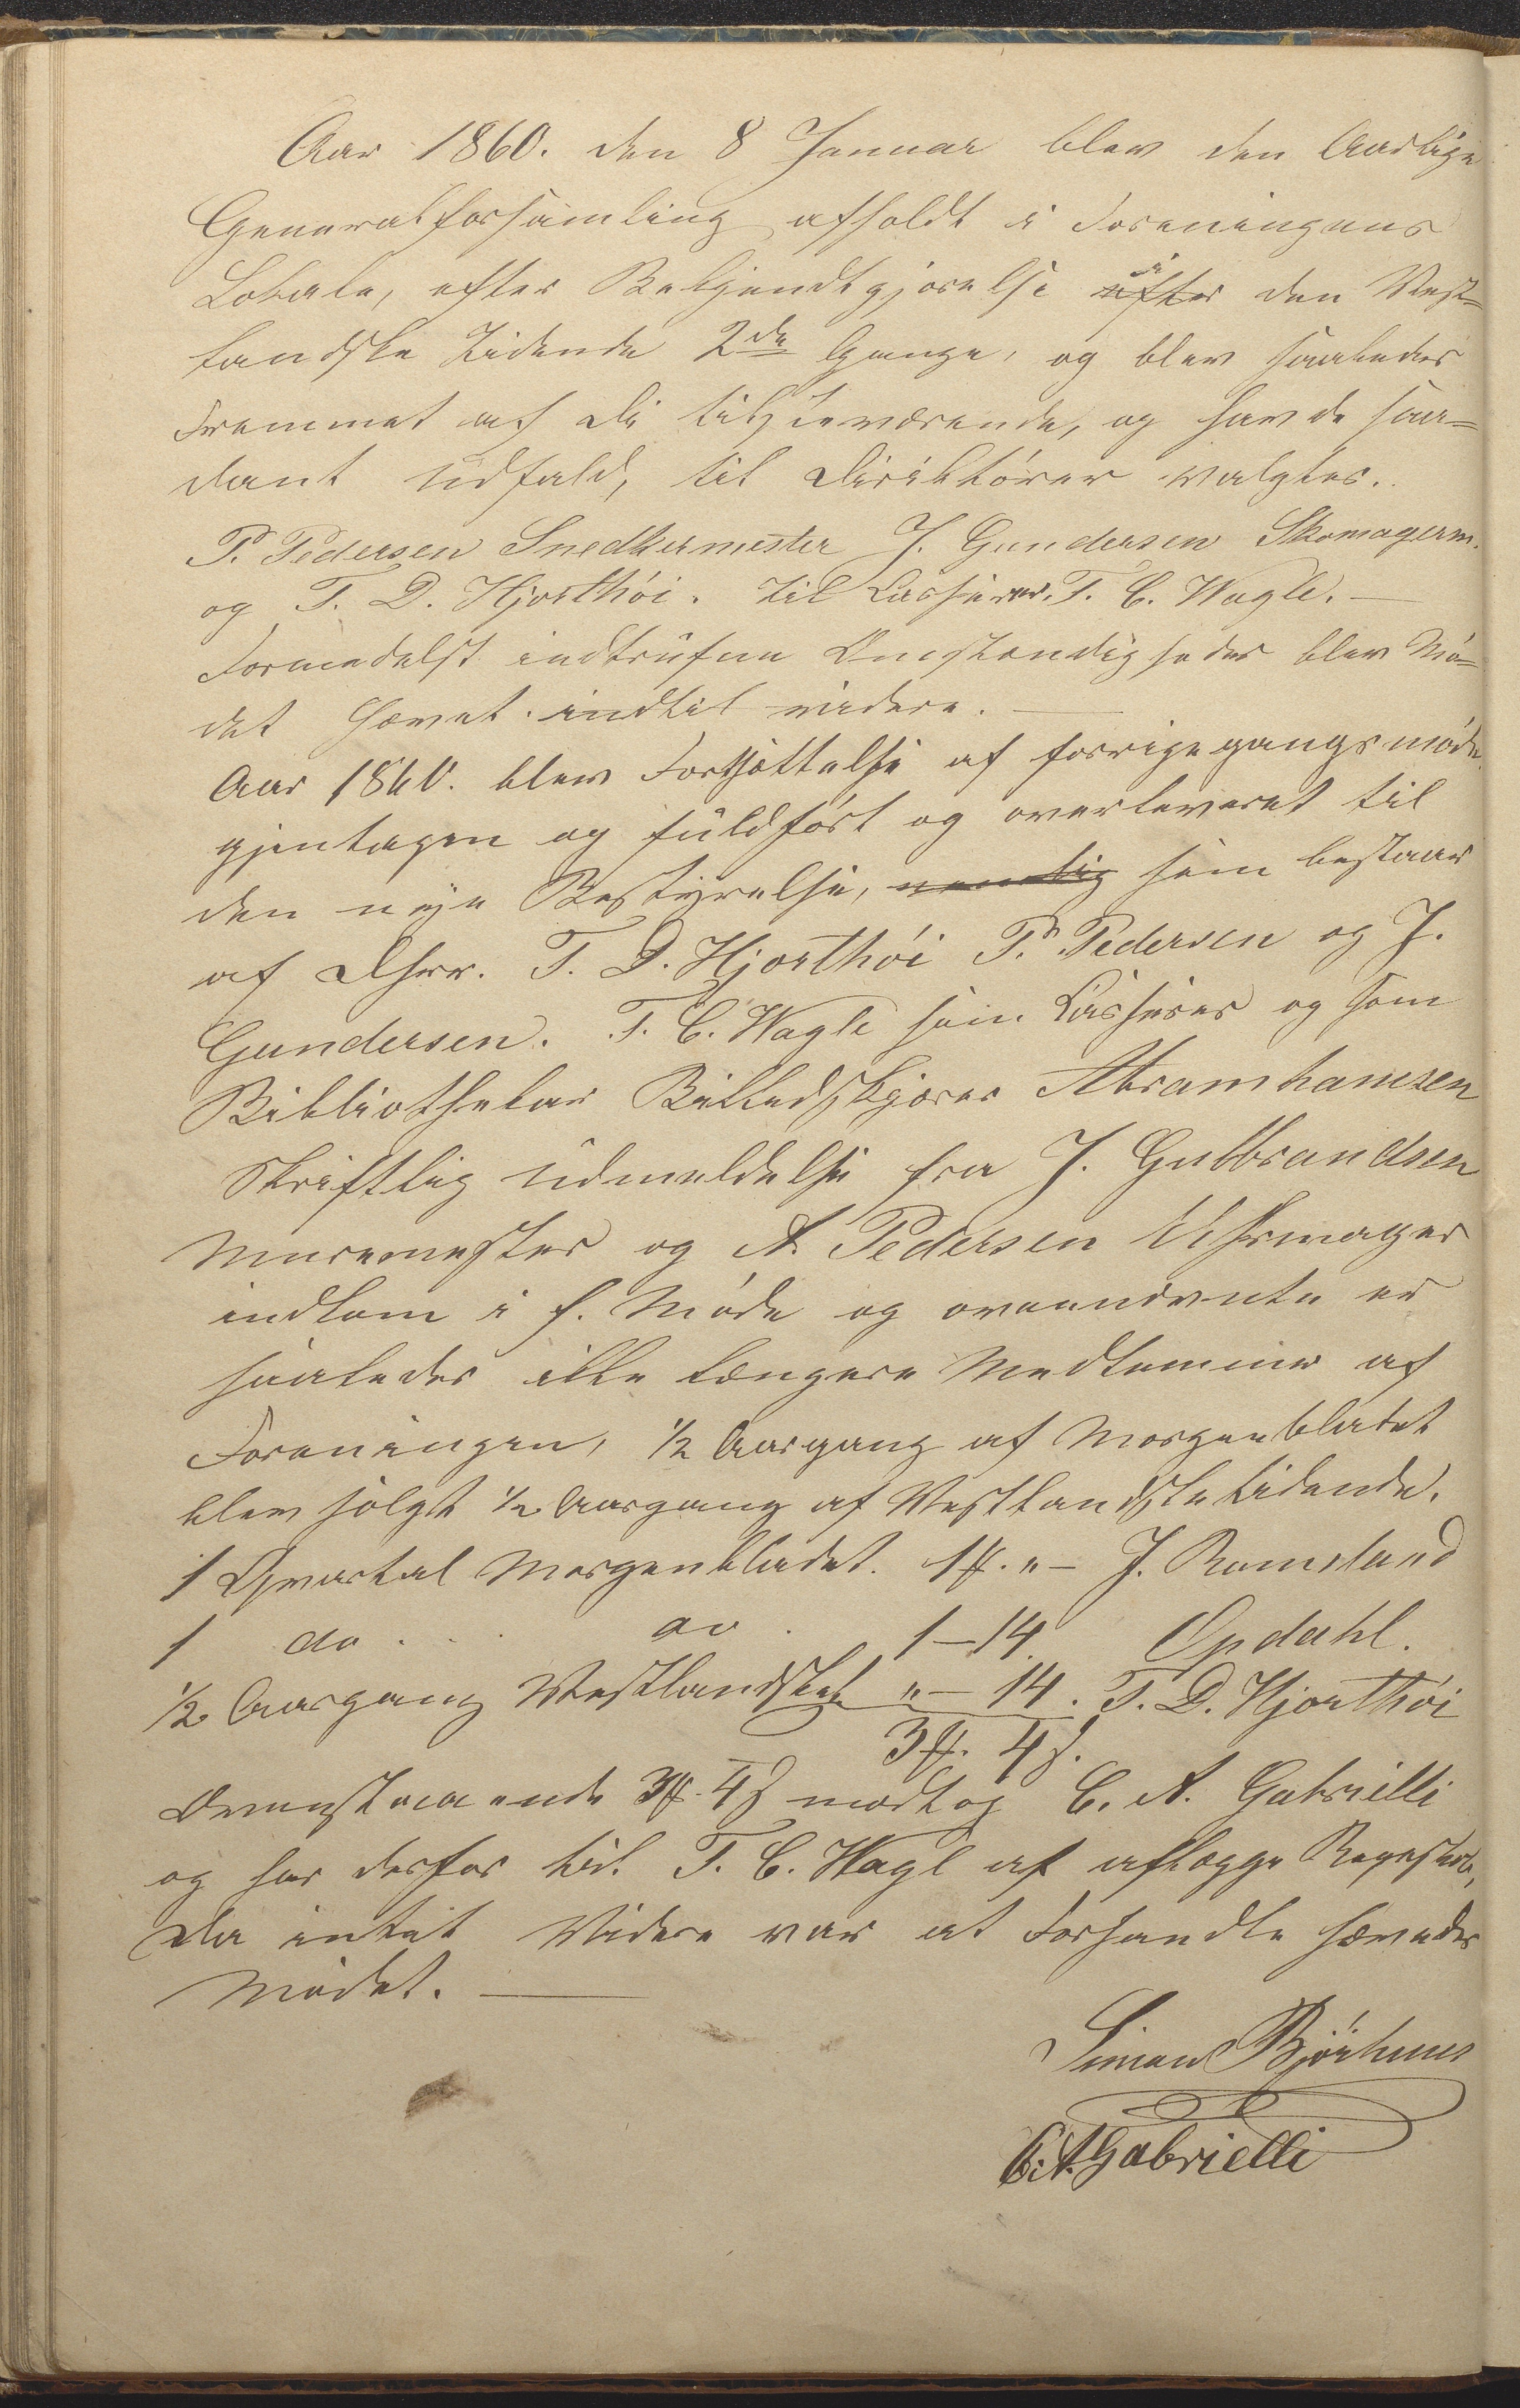 Aar 1860. den 8 Januar blev den Aarlige
Generalforsamling afholdt i Foreningens
Lokale, efter Bekjendtgjørelse efter i den Vest=
landske Tidende 2de Gange, og blev saaledes
Fremmet af di tilstæværende, og havde saa=
dant Udfald, til Diriktörer valgtes.
P. Pedersen Snedkermester J. Gundersen Skomagerm.
og T. D. Hjorthöi. til Casserer. T. C. Wagle. —
Formedelst indtrufne Omstændigheder blev Mö=
det hævet indtil videre. —
Aar 1860. blev Fortsöttelse af forrige gangs möde
gjentagen og fuldfört og overleveret til
den nye Bestyrelse, nemlig som bestaar
af Dhrr. T. D. Hjorthöi P. Pedersen og J.
Gundersen. T. C. Wagle som Casserer og som
Bibliothekar Billedskjærer Abramhamsen
Skriftlig udmeldelse fra J. Gulbrandsen
Muremester og A. Pedersen Uhrmager
indkom i f. Möde og ovennevnte er
saaledes ikke længere Medlemmer af
Foreningen, 1/2 Aargang af Morgenbladet
blev solgt 1/2 Aargang af Vestlandske tidende.
1 Qvartal Morgenbladet. 1 . " – J. Ramsland
1 do . . . do . 1 – 14. Opdahl.
1/2 Aargang Vestlandsket " – 14. T. D. Hjorthöi
3 . 4 ß.
Ovenstaaende 3 . 4 ß modtog C. A. Gabrielli
og har derfor til T. C. Wagl at aflægge Regnskab,
Da intet Videre var at Forhandle hævedes
Mödet. —
Simon Björhuus
C. A. Gabrielli